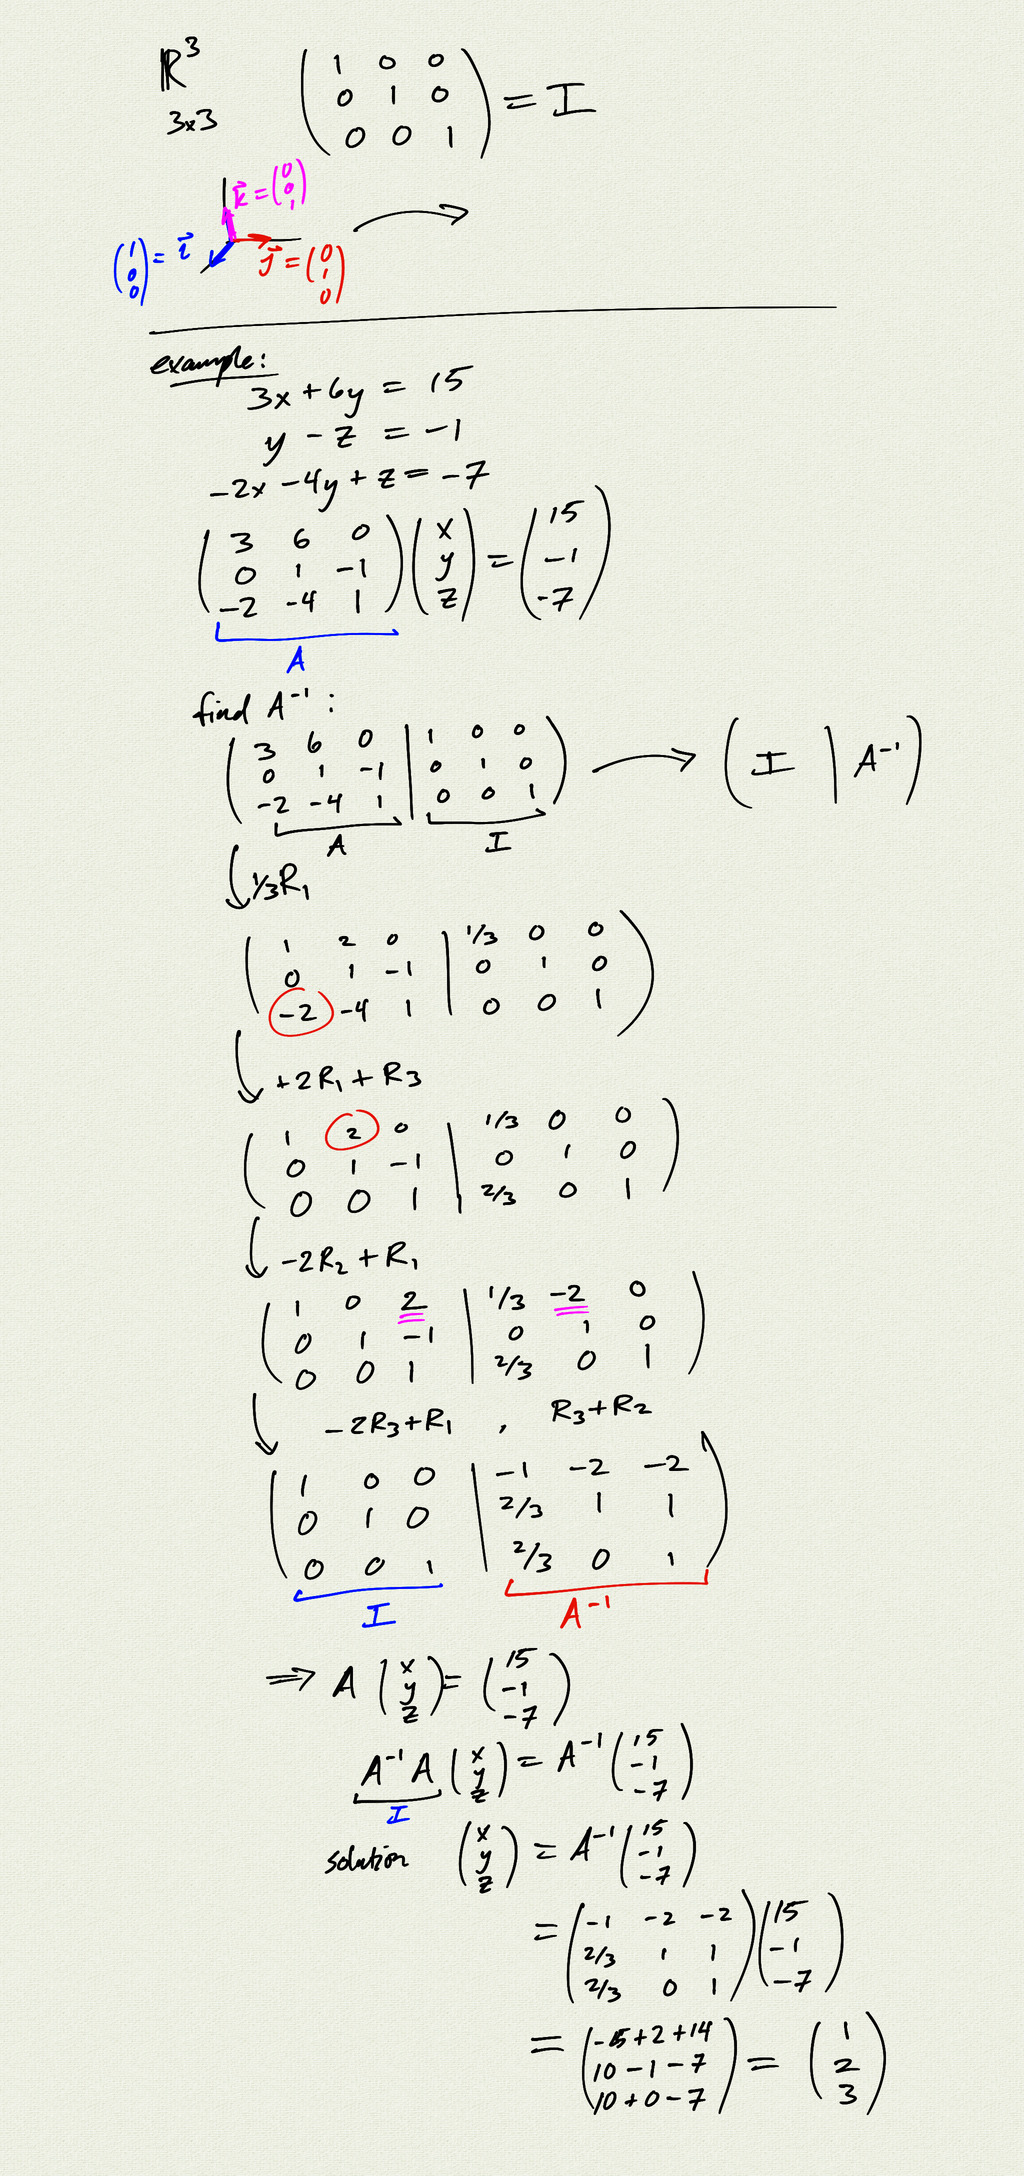 ℝ³ ( 1 0 0
3x3 0 1 0 ) = I
0 0 1
k⃗ = (0 0 1)
(1 0 0) = i⃗ j⃗ = (0 1 0)
example:
3x + 6y = 15
y - z = -1
-2x - 4y + z = -7
( 3 6 0 ) ( x ) = ( 15 )
( 0 1 -1 ) ( y ) ( -1 )
( -2 -4 1 ) ( z ) ( -7 )
A
find A⁻¹ :
( 3 6 0 | 1 0 0 )
( 0 1 -1 | 0 1 0 ) → ( I | A⁻¹ )
( -2 -4 1 | 0 0 1 )
A I
1/3R₁
( 1 2 0 | 1/3 0 0 )
( 0 1 -1 | 0 1 0 )
( -2 -4 1 | 0 0 1 )
+2R₁ + R₃
( 1 2 0 | 1/3 0 0 )
( 0 1 -1 | 0 1 0 )
( 0 0 1 | 2/3 0 1 )
-2R₂ + R₁
( 1 0 2 | 1/3 -2 0 )
( 0 1 -1 | 0 1 0 )
( 0 0 1 | 2/3 0 1 )
-2R₃+R₁ , R₃+R₂
( 1 0 0 | -1 -2 -2 )
( 0 1 0 | 2/3 1 1 )
( 0 0 1 | 2/3 0 1 )
I A⁻¹
⇒ A ( x y z ) = ( 15 -1 -7 )
A⁻¹ A ( x y z ) = A⁻¹ ( 15 -1 -7 )
I
solution ( x y z ) = A⁻¹ ( 15 -1 -7 )
= ( -1 -2 -2 ) ( 15 )
( 2/3 1 1 ) ( -1 )
( 2/3 0 1 ) ( -7 )
= ( -15 + 2 + 14 ) = ( 1 )
( 10 - 1 - 7 ) ( 2 )
( 10 + 0 - 7 ) ( 3 )